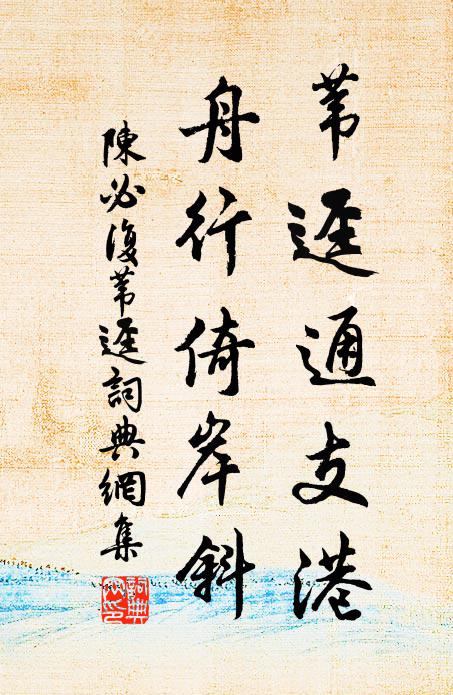 苇逕通支港
舟行倚岸斜
陳必復苇逕詞典網集